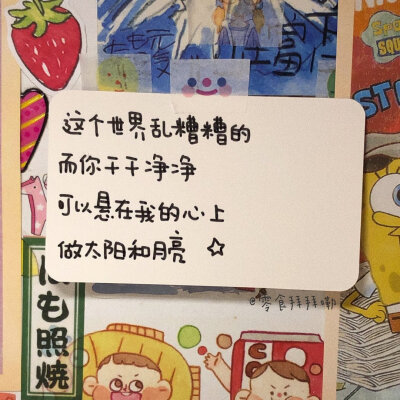 这个世界乱糟糟的
而你干干净净
可以悬在我的心上
做太阳和月亮 ☆
@零食拜拜嘞
も照焼